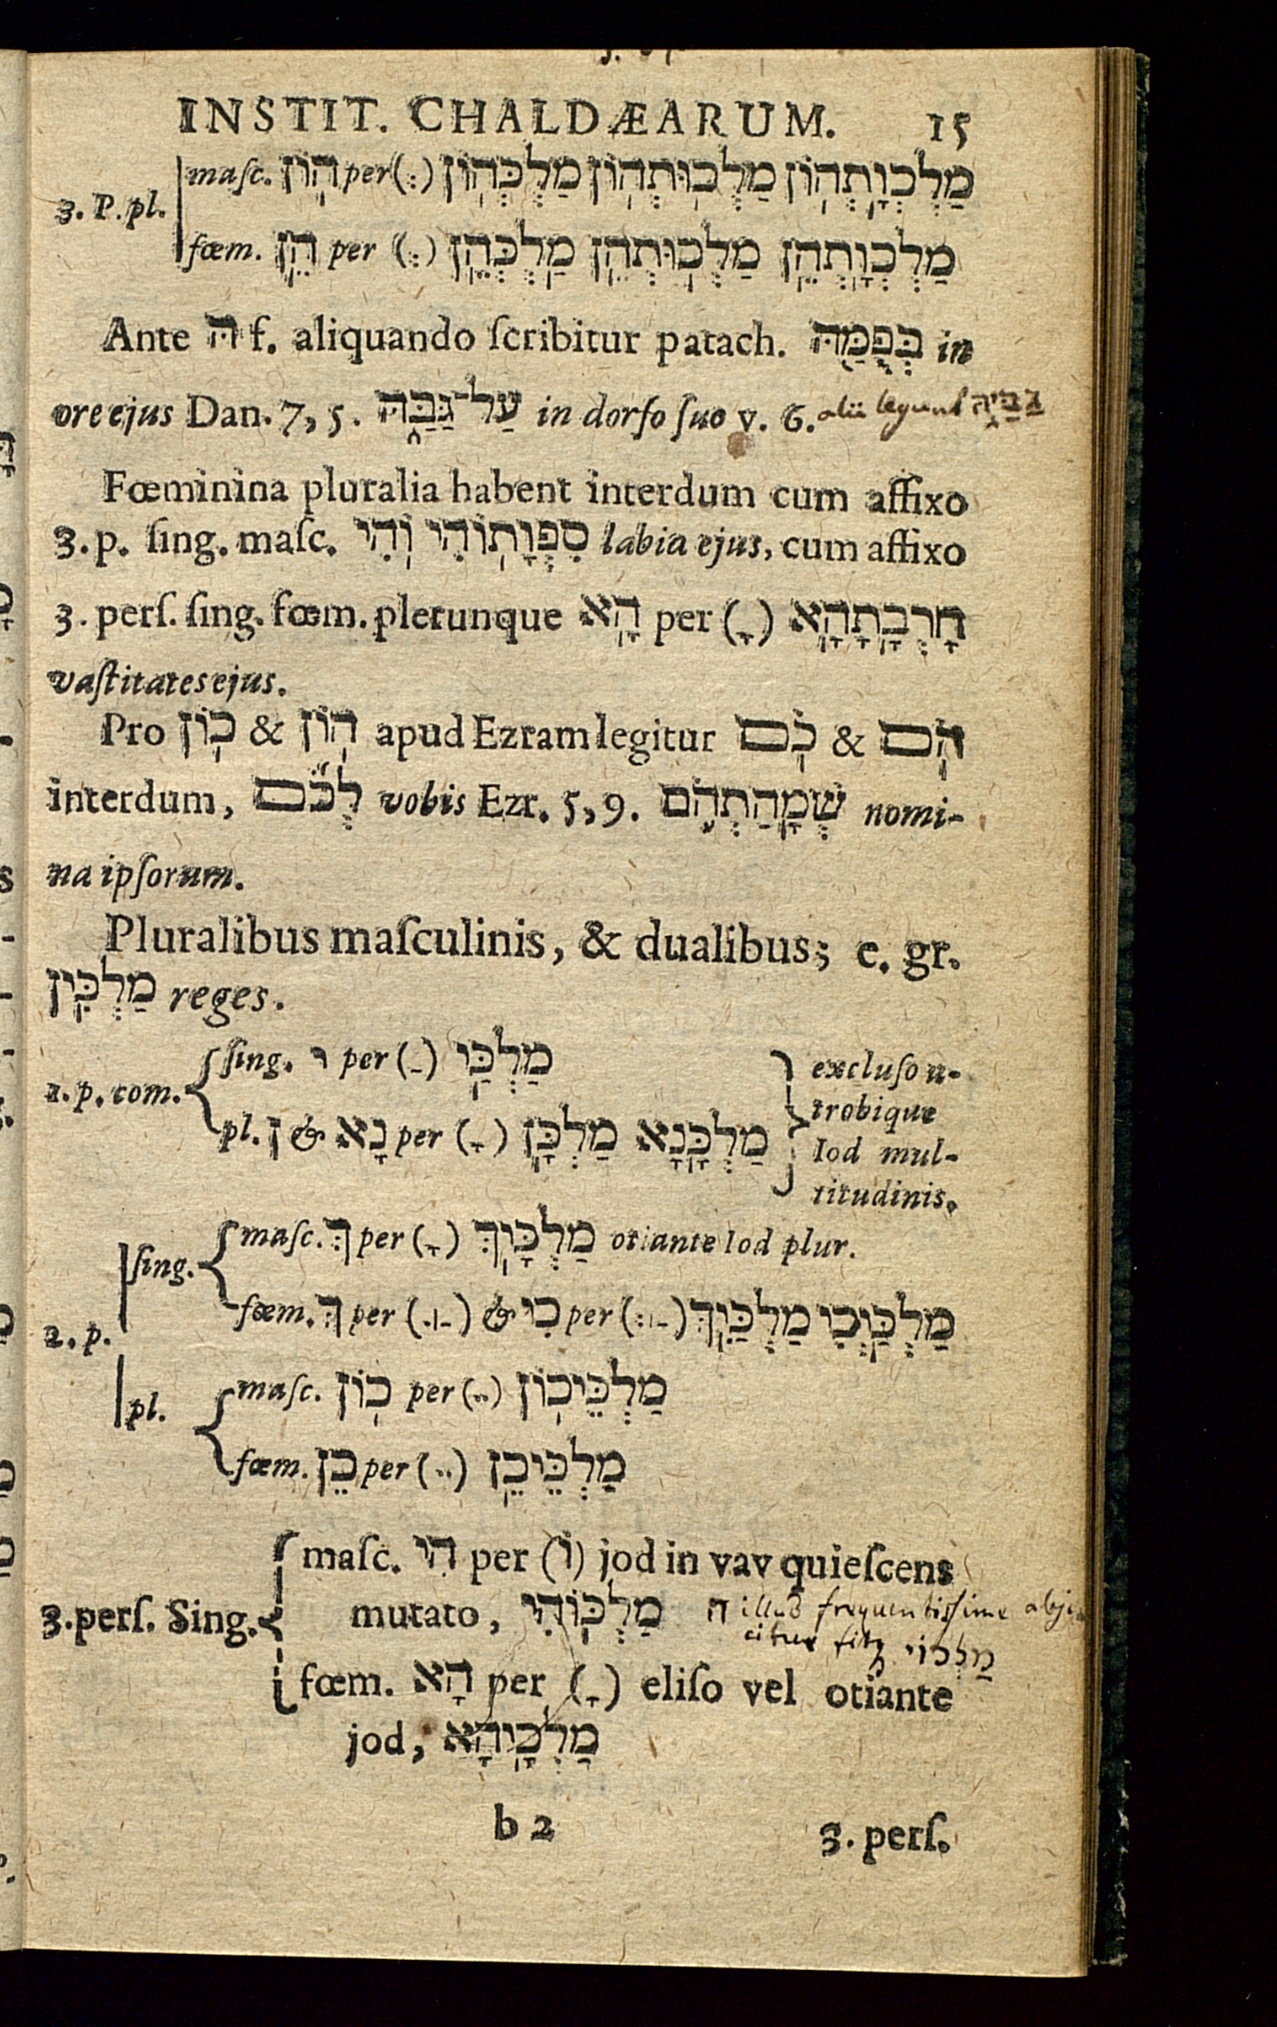 INSTIT. CHALDÆARUM. 15
3. P. pl.
masc. הוֹן per (ְ) מַלְכְּהוֹן מַלְכוּתְהוֹן מַלְכְוָתְהוֹן
fœm. הֵן per (ְ) מַלְכְּהֵן מַלְכוּתְהֵן מַלְכְוָתְהֵן
Ante הּ f. aliquando ſcribitur patach. בְּפֻמַּהּ in
ore ejus Dan. 7, 5. עַל־גַּבַּהּ in dorſo ſuo v. 6. alii legunt גַּבַּיהּ
Fœminina pluralia habent interdum cum affixo
3. p. ſing. maſc. וֹהִי סִפְוָתוֹהִי labia ejus, cum affixo
3. perſ. ſing. fœm. plerunque הָא per (ָ) חָרְבָתָהָא
vaſtitates ejus.
Pro כוֹן & הוֹן apud Ezram legitur כֹם & הֹם
interdum, לְכֹם vobis Ezr. 5, 9. שְׁמָהָתְהֹם nomi-
na ipſorum.
Pluralibus maſculinis, & dualibus; e. gr.
מַלְכִּין reges.
1. p. com.
ſing. י per (ַ) מַלְכַּי
pl. ן & נָא per (ָ) מַלְכָּן מַלְכָּנָא
excluſo u-
trobique
Iod mul-
titudinis.
2. p.
ſing.
maſc. ךְ per (ָ) מַלְכָּיךְ otiante Iod plur.
fœm. ךְ per (ִַ֗) & כִי per (ְַ֗) מַלְכַּיִךְ מַלְכַּיְכִי
pl.
maſc. כוֹן per (ֵ) מַלְכֵּיכוֹן
fœm. כֵן per (ֵ) מַלְכֵּיכֵן
3. perſ. Sing.
maſc. הִי per (וֹ) jod in vav quieſcens
mutato, מַלְכּוֹהִי ה illud frequentissime abji-
citur fitq מַלְכּוֹי
fœm. הָא per (ָ) eliſo vel otiante
jod, מַלְכָּיהָא
b 2 3. perſ.